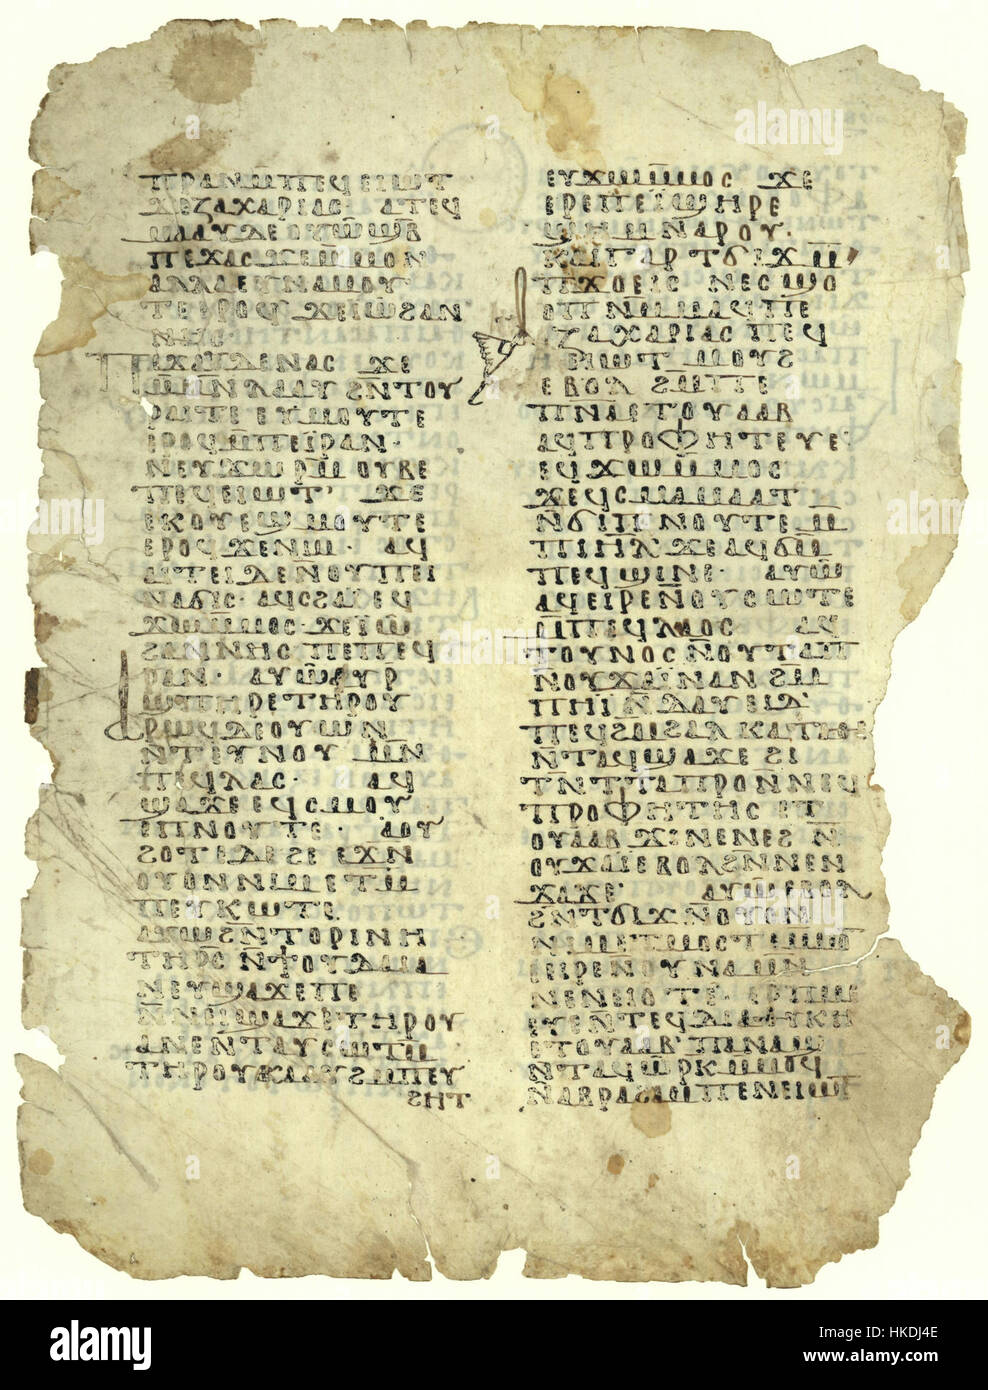 ⲡⲣⲁⲛⲙ̄ⲡⲉϥⲉⲓⲱⲧ
ϫⲉⲍⲁⲭⲁⲣⲓⲁⲥ· ⲁⲧⲉϥ
ⲙⲁⲁⲩⲇⲉⲟⲩⲱϣ̄ⲃ
ⲡⲉϫⲁⲥϫⲉⲙ̄ⲙⲟⲛ
ⲁⲗⲗⲁⲉⲩⲛⲁⲙⲟⲩ
ⲧⲉⲉⲣⲟϥϫⲉⲓ̈ⲱϩⲁⲛ
ⲛⲏⲥ·
ⲡⲉϫⲁⲩⲇⲉⲛⲁⲥ ϫⲉ
ⲙ̄ⲙⲛ̄ⲗⲁⲁⲩϩⲛ̄ⲧⲟⲩ
ⲣⲁⲓⲧⲉ ⲉⲩⲙⲟⲩⲧⲉ
ⲉⲣⲟϥⲙ̄ⲡⲉⲓ̈ⲣⲁⲛ·
ⲛⲉⲩϫⲱⲣⲙ̄ⲟⲩⲃⲉ
ⲡⲉϥⲉⲓⲱⲧ· ϫⲉ
ⲉⲕⲟⲩⲉϣⲙⲟⲩⲧⲉ
ⲉⲣⲟϥϫⲉⲛⲓⲙ· ⲁϥ
ⲁⲓⲧⲉⲓⲇⲉⲛⲟⲩⲡⲉⲓ
ⲛⲁϭⲓⲥ· ⲁϥⲥϩⲁⲓ̈ⲉϥ
ϫⲱⲙ̄ⲙⲟⲥ ϫⲉⲓ̈ⲱ
ϩⲁⲛⲛⲏⲥ ⲡⲉⲡⲉϥ
ⲣⲁⲛ· ⲁⲩⲱⲁⲩⲣ̄
ϣⲡⲏⲣⲉⲧⲏⲣⲟⲩ
ⲣⲱϥⲇⲉⲟⲩⲱⲛ
ⲛ̄ⲧⲉⲩⲛⲟⲩ ⲙⲛ̄
ⲡⲉϥⲗⲁⲥ· ⲁϥ
ϣⲁϫⲉⲉϥⲥⲙⲟⲩ
ⲉⲡⲛⲟⲩⲧⲉ· ⲁⲟⲩ
ϩⲟⲧⲉⲇⲉϩⲉ ⲉϫⲛ̄
ⲟⲩⲟⲛⲛⲓⲙⲉⲧⲙ̄
ⲡⲉⲩⲕⲱⲧⲉ
ⲁⲩⲱϩⲛ̄ⲧⲟⲣⲓⲛⲏ
ⲧⲏⲣⲥ ⲛ̄ϯⲟⲩⲇⲁⲓⲁ
ⲛⲉⲩϣⲁϫⲉⲡⲉ
ⲛ̄ⲛⲉⲓ̈ϣⲁϫⲉⲧⲏⲣⲟⲩ
ⲁⲛⲉⲛ̄ⲧⲁⲩⲥⲱⲧⲙ̄
ⲧⲏⲣⲟⲩⲕⲁⲁⲩϩⲙ̄ⲡⲉⲩ
ϩⲏⲧ
ⲉⲩϫⲱⲙ̄ⲙⲟⲥ ϫⲉ
ⲉⲣⲉⲡⲉⲓ̈ϣⲏⲣⲉ
ϣⲏⲙⲛⲁⲣⲟⲩ·
ⲕⲁⲓⲅⲁⲣⲧϭⲓϫⲙ̄
ⲡϫⲟⲉⲓⲥ ⲛⲉⲥϣⲟ
ⲟⲡⲛⲙ̄ⲙⲁϥⲡⲉ
ⲁⲍⲁⲭⲁⲣⲓⲁⲥⲡⲉϥ
ⲉⲓⲱⲧ ⲙⲟⲩϩ
ⲉⲃⲟⲗ ϩⲙ̄ⲡⲉ
ⲡⲛ̄ⲁⲉⲧⲟⲩⲁⲁⲃ
ⲁϥⲡⲣⲟⲫⲏⲧⲉⲩⲉ
ⲉϥϫⲱⲙ̄ⲙⲟⲥ
ϫⲉϥⲥⲙⲁⲙⲁⲁⲧ
ⲛ̄ϭⲓⲡⲛⲟⲩⲧⲉⲙ̄
ⲡⲓⲏ̄ⲗ ϫⲉⲁϥϭⲙ̄
ⲡⲉϥϣⲓⲛⲉ· ⲁⲩⲱ
ⲁϥⲉⲓⲣⲉⲛ̄ⲟⲩⲥⲱⲧⲉ
ⲙ̄ⲡⲉϥⲗⲁⲟⲥ ⲁϥ
ⲧⲟⲩⲛⲟⲥⲛ̄ⲟⲩⲧⲁⲡ
ⲛⲟⲩϫⲁⲓ̈ⲛⲁⲛϩⲙ̄
ⲡⲏⲓ̈ⲛ̄ⲇⲁⲩⲉⲓⲇ
ⲡⲉϥϩⲙ̄ϩⲁⲗ ⲕⲁⲧⲁⲑⲉ
ⲛ̄ⲧⲁϥϣⲁϫⲉ ϩⲓ
ⲧⲛ̄ⲧⲧⲁⲡⲣⲟⲛ̄ⲛⲉϥ
ⲡⲣⲟⲫⲏⲧⲏⲥ ⲉⲧ
ⲟⲩⲁⲁⲃ ϫⲓⲛⲉⲛⲉϩ ⲛ̄
ⲟⲩϫⲁⲓⲉⲃⲟⲗϩⲛ̄ⲛⲉⲛ
ϫⲁϫⲉ· ⲁⲩⲱⲉⲃⲟⲗ
ϩⲛ̄ⲧϭⲓϫⲛ̄ⲟⲩⲟⲛ
ⲛⲓⲙⲉⲧⲙⲟⲥⲧⲉⲙ̄ⲙⲟ
ⲉⲉⲓⲣⲉⲛⲟⲩⲛⲁⲙⲛ̄
ⲛⲉⲛⲉⲓⲟⲧⲉ· ⲉⲣⲡⲙⲉ
ⲉⲩⲉⲛⲧⲉϥⲇⲓⲁⲑⲩⲕⲏ
ⲉⲧⲟⲩⲁⲁⲃ ⲡⲁⲛⲁϣ
ⲛ̄ⲧⲁϥⲱⲣⲕ̄ⲙ̄ⲙⲟϥ
ⲛⲁⲃⲣⲁϩⲁⲙⲡⲉⲛⲉⲓⲱⲧ
alamy
Image ID: HKDJ4E
www.alamy.com